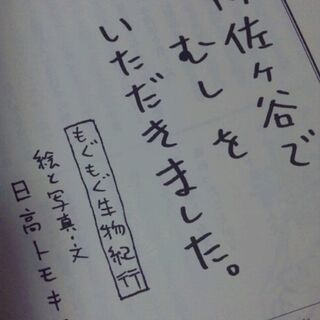 佐ヶ谷で
むしを
いただきました。
もぐもぐ生物紀行
絵と写真・文
日高トモキ